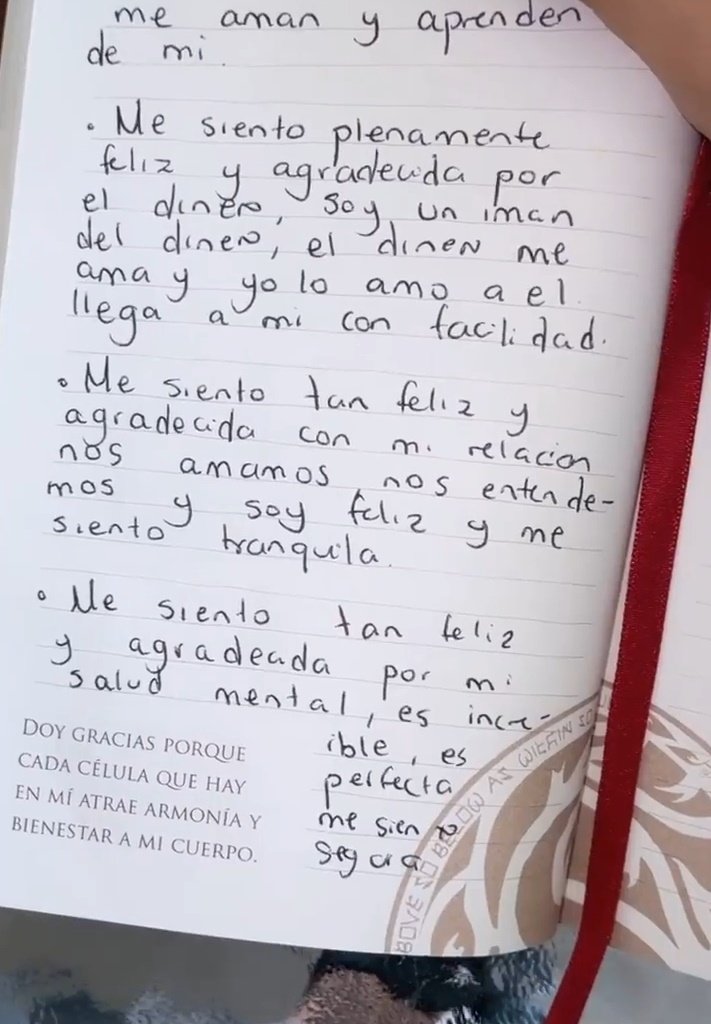 me aman y aprenden
de mi.
. Me siento plenamente
feliz y agradecida por
el dinero, soy un iman
del dinero, el dinero me
ama y yo lo amo a el.
llega a mi con facilidad.
. Me siento tan feliz y
agradecida con mi relacion
nos amamos, nos entende-
mos y soy feliz y me
siento tranquila.
. Me siento tan feliz
y agradecida por mi
salud mental, es incre-
ible, es
perfecta
me siento
segura
DOY GRACIAS PORQUE
CADA CÉLULA QUE HAY
EN MÍ ATRAE ARMONÍA Y
BIENESTAR A MI CUERPO.
BOVE SO BELOW AS WITHIN SO